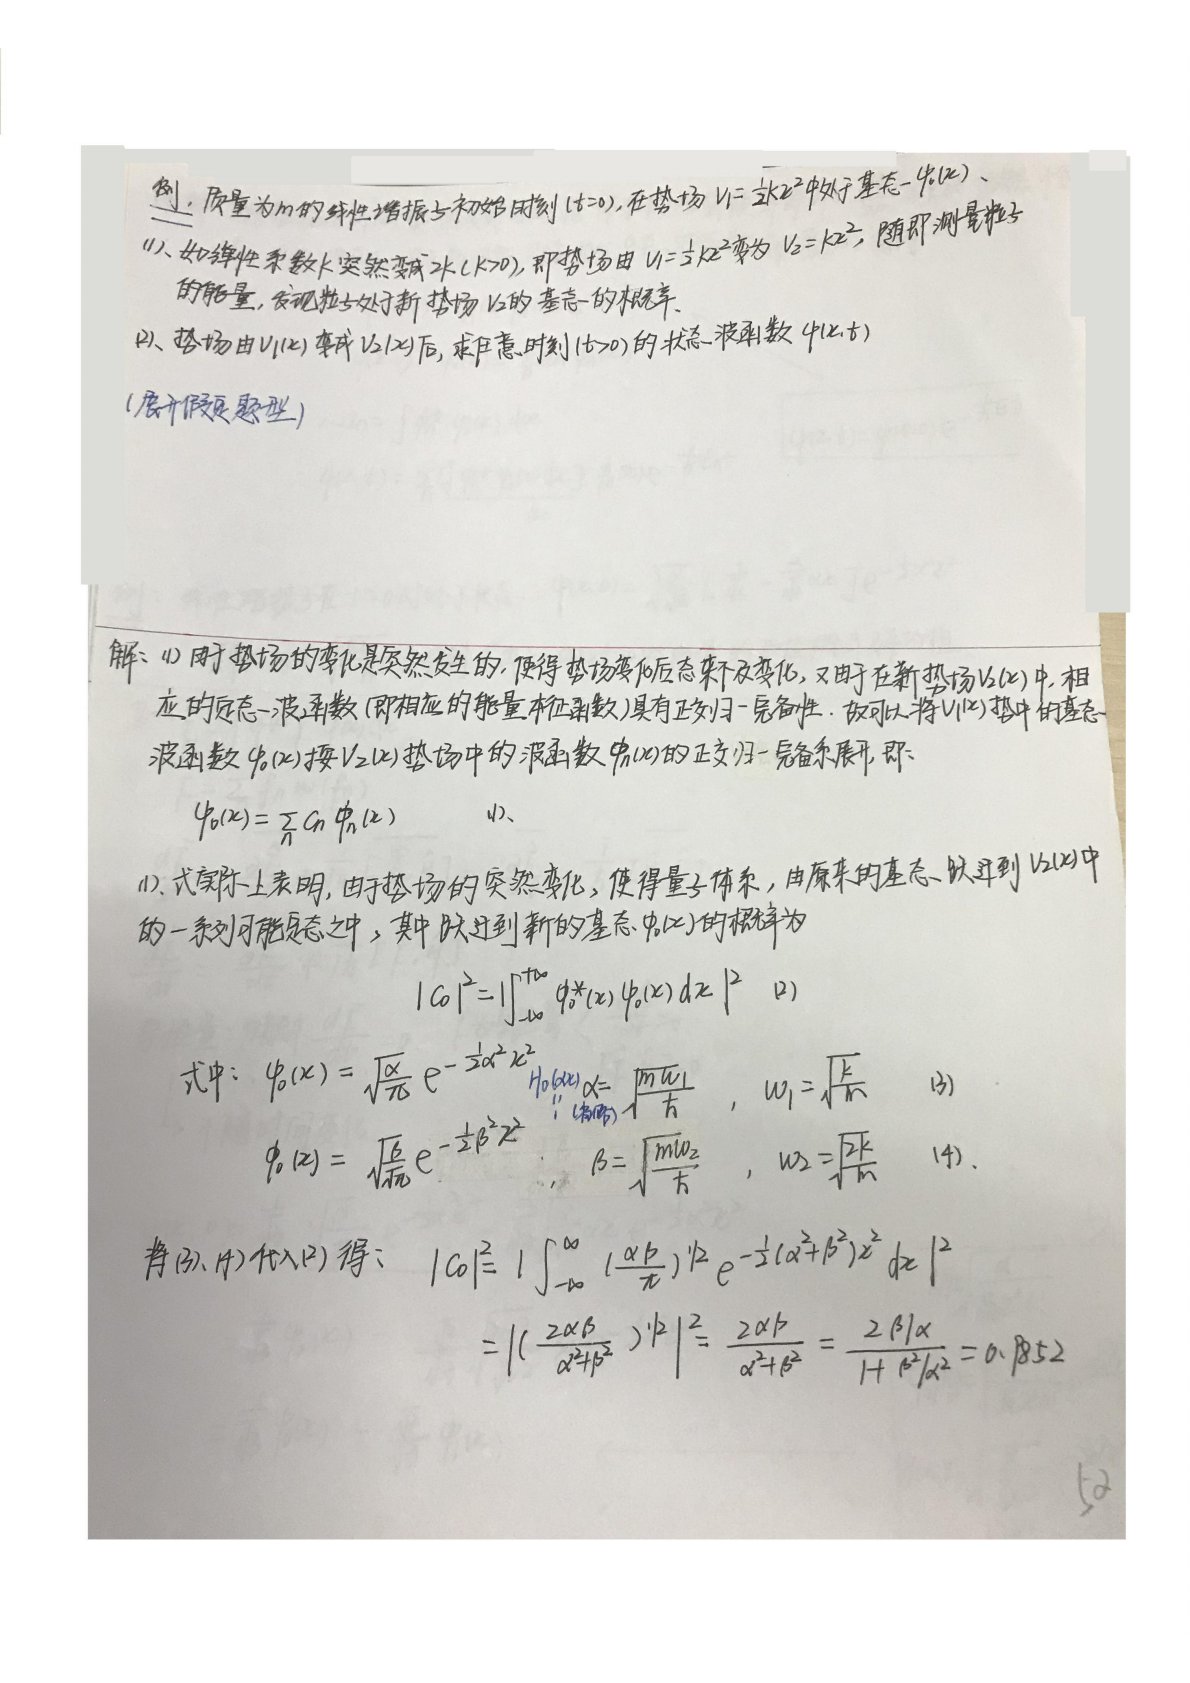 例、质量为m的线性谐振子初始时刻(t=0),在势场 V₁=½kx²中处于基态ψ₀(x)、
(1)、如弹性系数k突然变成2k(k>0),即势场由V₁=½kx²变为 V₂=kx²,随即测量粒子
的能量,发现粒子处于新势场V₂的基态的概率.
(2)、势场由V₁(x)变成V₂(x)后,求任意时刻(t>0)的状态波函数 ψ(x,t)
(展开假定题型)
解:(1)由于势场的变化是突然发生的,使得势场变化后态来不及变化,又由于在新势场V₂(x)中,相
应的定态波函数(即相应的能量本征函数)具有正交归一完备性.故可以将V₁(x)势中的基态
波函数ψ₀(x)按V₂(x)势场中的波函数φₙ(x)的正交归一完备系展开,即:
ψ₀(x)=∑ₙ Cₙ φₙ(x) (1)、
(1)、式实际上表明,由于势场的突然变化,使得量子体系,由原来的基态、跃迁到V₂(x)中
的一系列可能定态之中,其中跃迁到新的基态φ₀(x)的概率为
|C₀|²=|∫₋∞⁺∞ φ₀*(x)ψ₀(x)dx|² (2)
式中: ψ₀(x)=√(α/√π) e^(-½α²x²) H₀(αx) (省略) α=√(mω₁/ħ) , ω₁=√(k/m) (3)
φ₀(x)=√(β/√π) e^(-½β²x²) ; β=√(mω₂/ħ) , ω₂=√(2k/m) (4).
将(3)、(4)代入(2)得: |C₀|²=|∫₋∞^∞ (αβ/π)^(1/2) e^(-½(α²+β²)x²) dx|²
=|(2αβ/(α²+β²))^(1/2)|²=2αβ/(α²+β²)=(2β/α)/(1+β²/α²)=0.9852
52